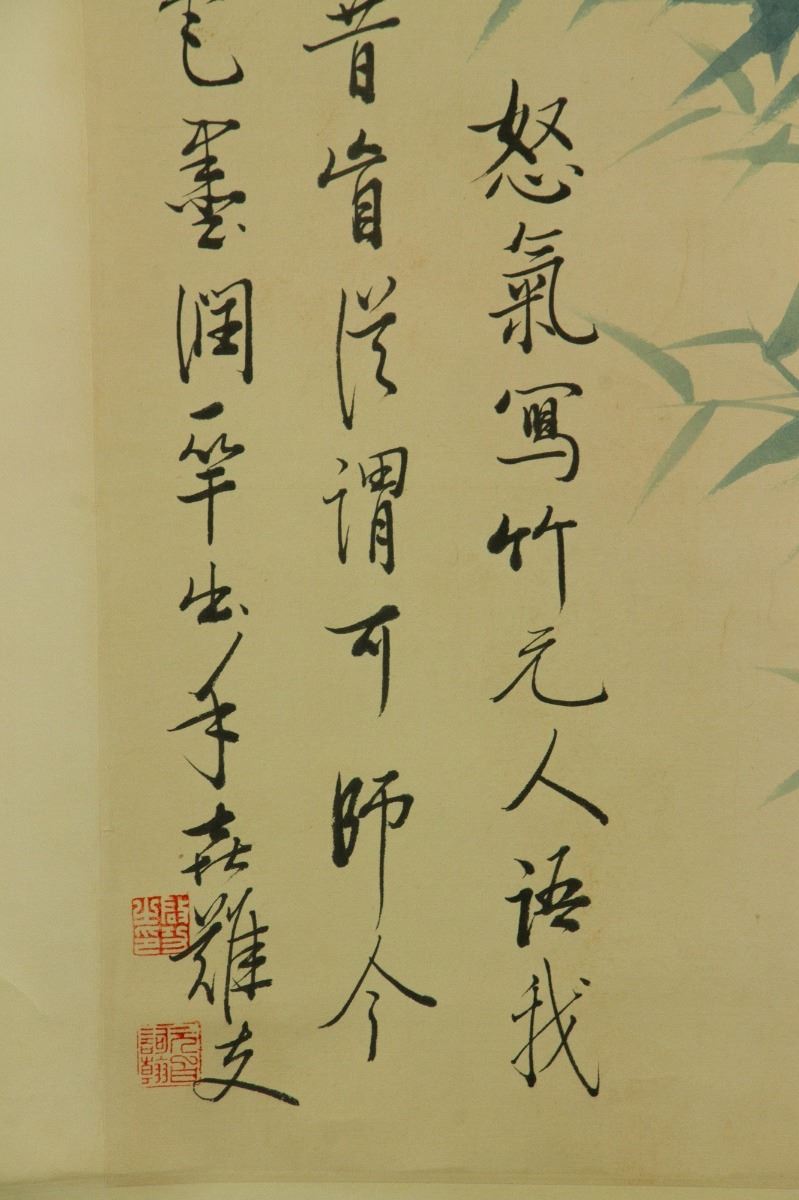 怒氣寫竹元人語我
昔嘗從謂可師今
墨潤竿出手甚難支